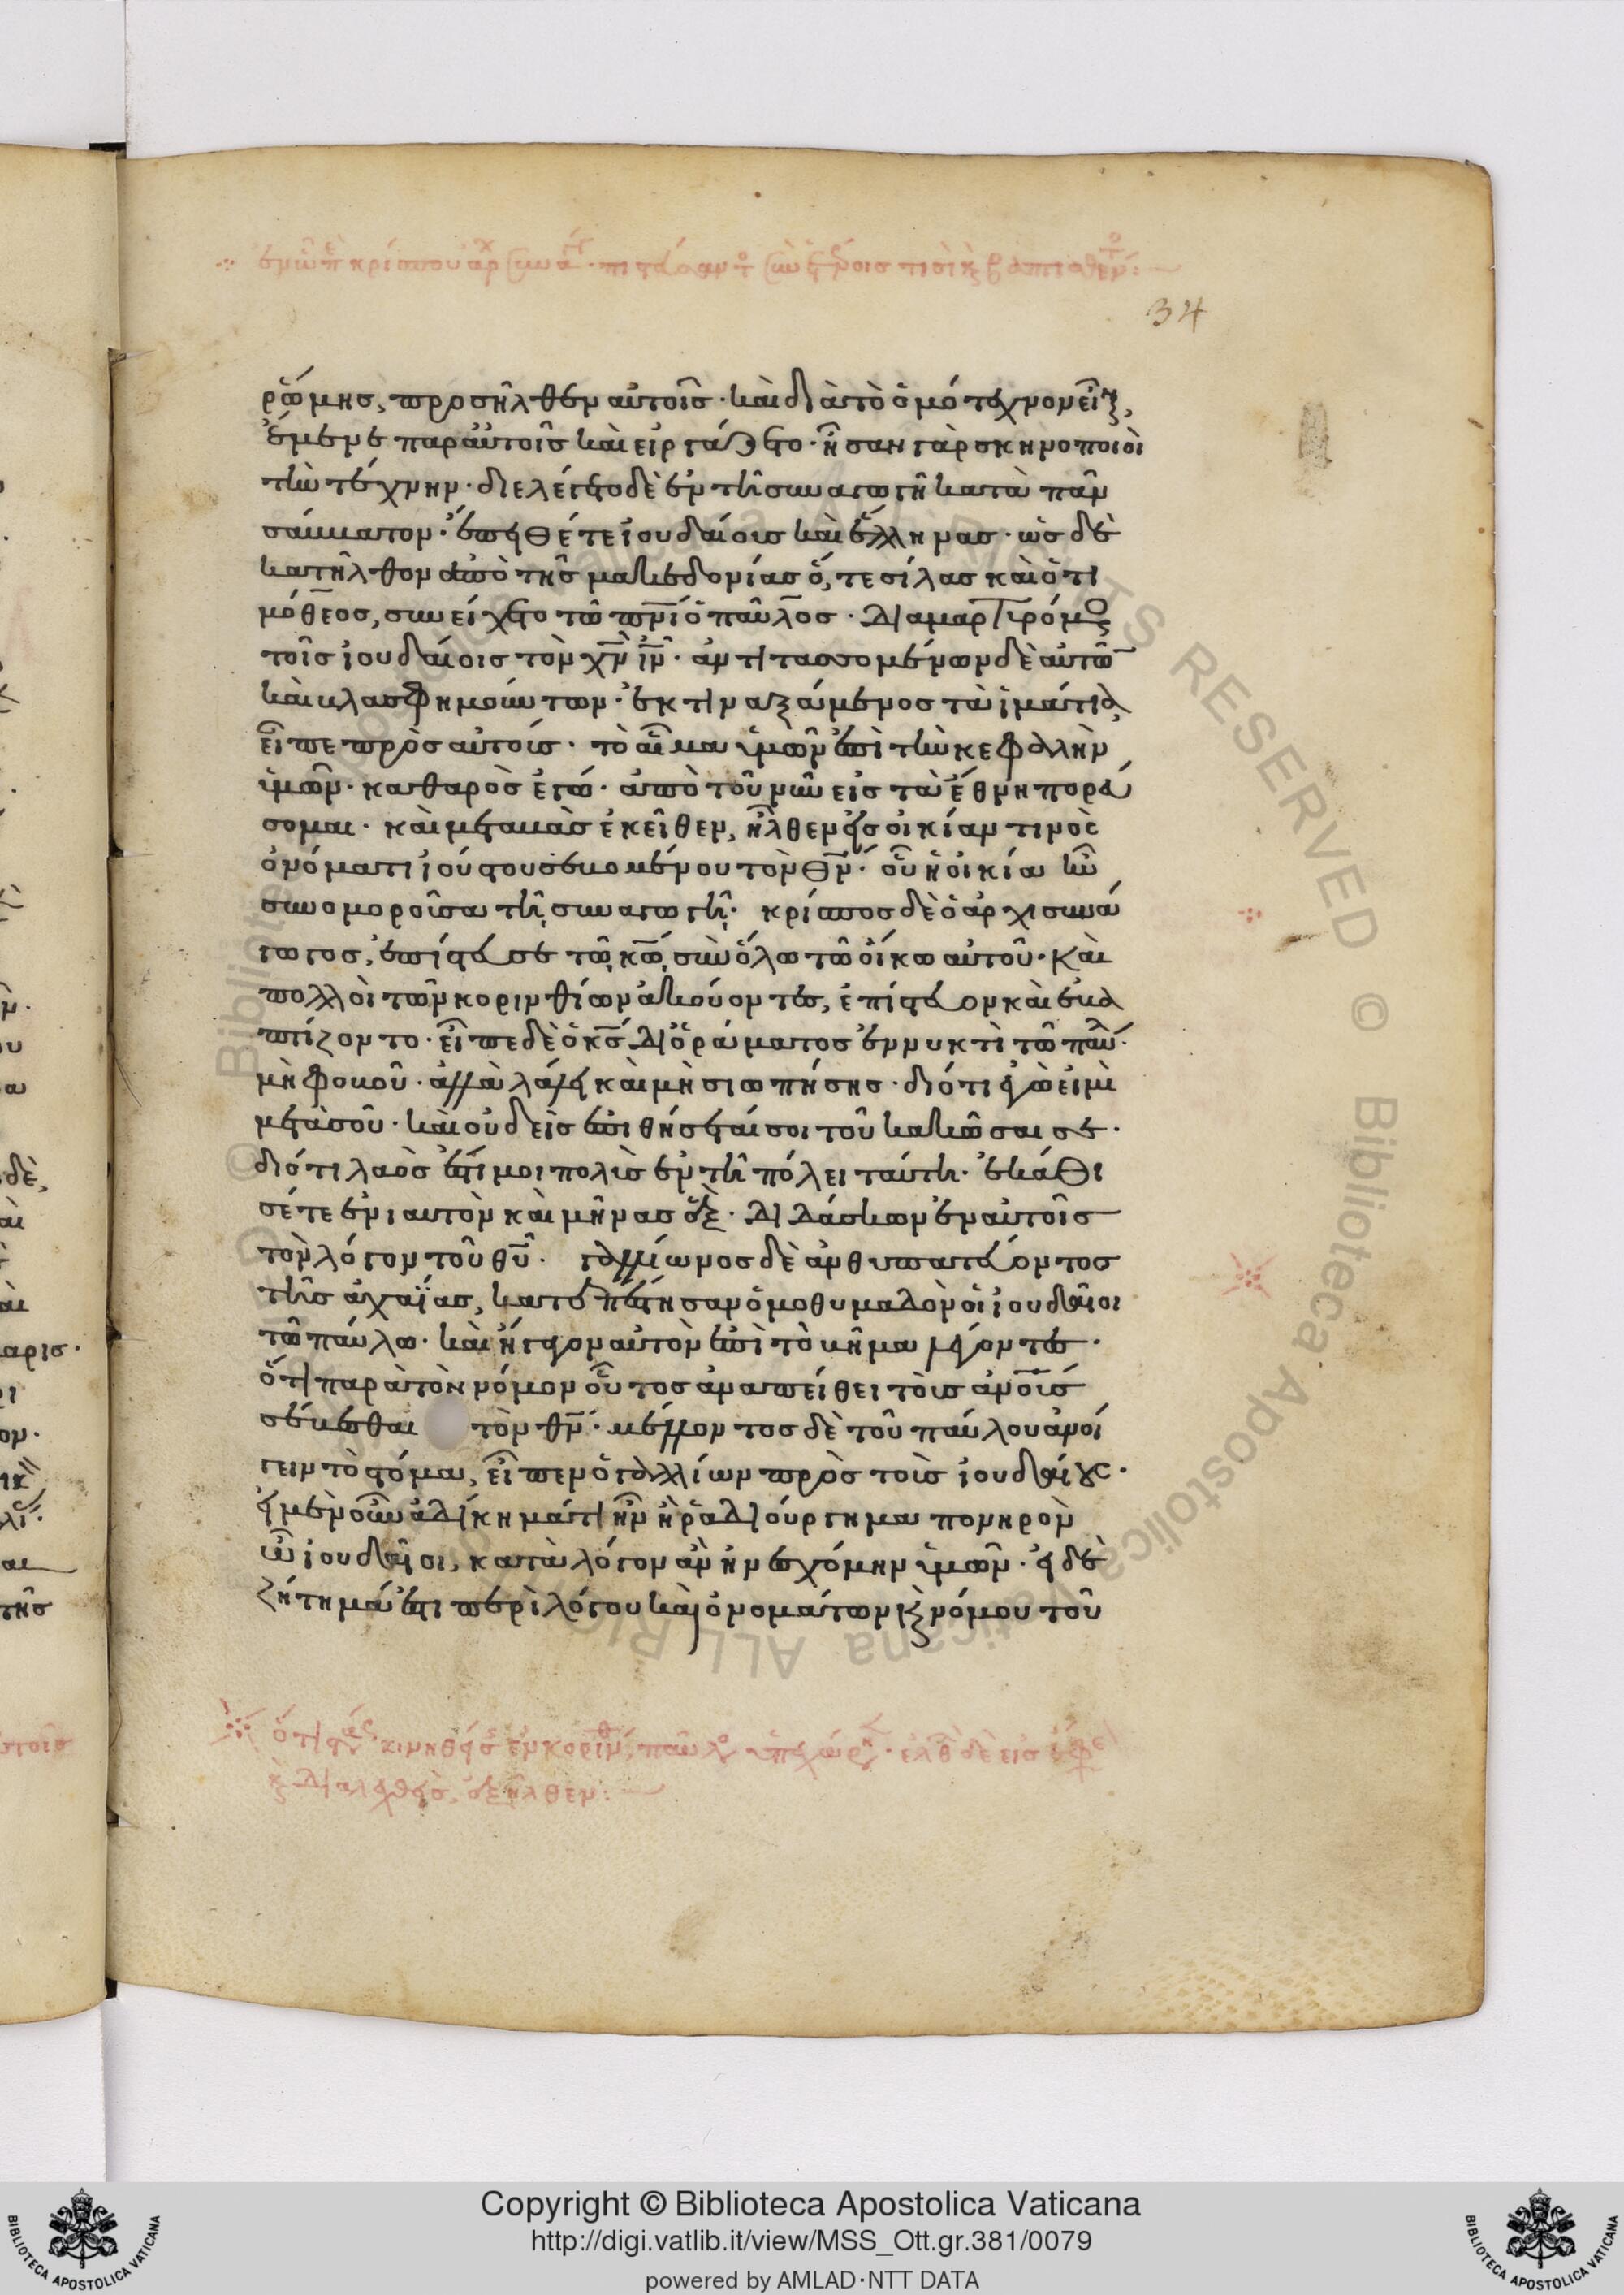 34
ῥώμης, προσῆλθεν αὐτοῖς· καὶ διὰ τὸ ὁμότεχνον εἶν,
ἔμενε παρ αὐτοῖς καὶ εἰργάζετο· ἦσαν γὰρ σκηνοποιοὶ
τὴν τέχνην· διελέγετο δὲ ἐν τῆ συναγωγῆ κατὰ πᾶν
σάββατον· ἔπειθέ τε ἰουδαίους καὶ ἕλληνας· ὡς δὲ
κατῆλθον ἀπὸ τῆς μακεδονίας ὅ, τε σίλας καὶ ὁ τι
μόθεος, συνείχετο τῶ πνι ὁ παῦλος· διαμαρτυρόμενος
τοῖς ἰουδαίοις τὸν χν ιν· ἀντιτασσομένων δὲ αὐτῶ
καὶ βλασφημούντων· ἐκτιναξάμενος τὰ ἱμάτια,
εἶπε πρὸς αὐτούς· τὸ αἷμα ὑμῶν ἐπὶ τὴν κεφαλὴν
ὑμῶν· καθαρὸς ἐγώ· ἀπὸ τοῦ νῦν εἰς τὰ ἔθνη πορεύ
σομαι· καὶ μεταβὰς ἐκεῖθεν, ἦλθεν εἰς οἰκίαν τινὸς
ὀνόματι ἰούστου σεβομένου τὸν θν· οὗ ἡ οἰκία ἦν
συνομοροῦσα τῆ συναγωγῆ· κρίσπος δὲ ὁ ἀρχισυνά
γωγος, ἐπίστευσε τῶ κω, σὺν ὅλω τῶ οἴκω αὐτοῦ· καὶ
πολλοὶ τῶν κορινθίων ἀκούοντες, ἐπίστευον καὶ ἐβα
πτίζοντο· εἶπε δὲ ὁ κς δι ὁράματος ἐν νυκτὶ τῶ παύ·
μὴ φοβοῦ· ἀλλὰ λάλει καὶ μὴ σιωπήσης· διότι ἐγώ εἰμι
μετὰ σοῦ· καὶ οὐδεὶς ἐπιθήσεταί σοι τοῦ κακῶσαι σε·
διότι λαὸς ἐστί μοι πολὺς ἐν τῆ πόλει ταύτη· ἐκάθι
σέ τε ἐνιαυτὸν καὶ μῆνας ἓξ· διδάσκων ἐν αὐτοῖς
τὸν λόγον τοῦ θυ· γαλλίωνος δὲ ἀνθυπατεύοντος
τῆς ἀχαΐας, κατεπέστησαν ὁμοθυμαδὸν οἱ ἰουδαῖοι
τῶ παύλω· καὶ ἤγαγον αὐτὸν ἐπὶ τὸ βῆμα λέγοντες·
ὅτι παρὰ τὸν νόμον οὗτος ἀναπείθει τοὺς ἀνους
σέβεσθαι τὸν θν· μέλλοντος δὲ τοῦ παύλου ἀνοί
γειν τὸ στόμα, εἶπεν ὁ γαλλίων πρὸς τοὺς ἰουδαίους·
εἰ μὲν οὖν ἀδίκημά τι ἦν ἢ ῥαδιούργημα πονηρὸν
ὦ ἰουδαῖοι, κατὰ λόγον ἂν ἠνεσχόμην ὑμῶν· εἰ δὲ
ζήτημά ἐστι περὶ λόγου καὶ ὀνομάτων κ νόμου τοῦ
Copyright © Biblioteca Apostolica Vaticana
http://digi.vatlib.it/view/MSS_Ott.gr.381/0079
powered by AMLAD·NTT DATA
BIBLIOTECA APOSTOLICA VATICANA
BIBLIOTECA APOSTOLICA VATICANA